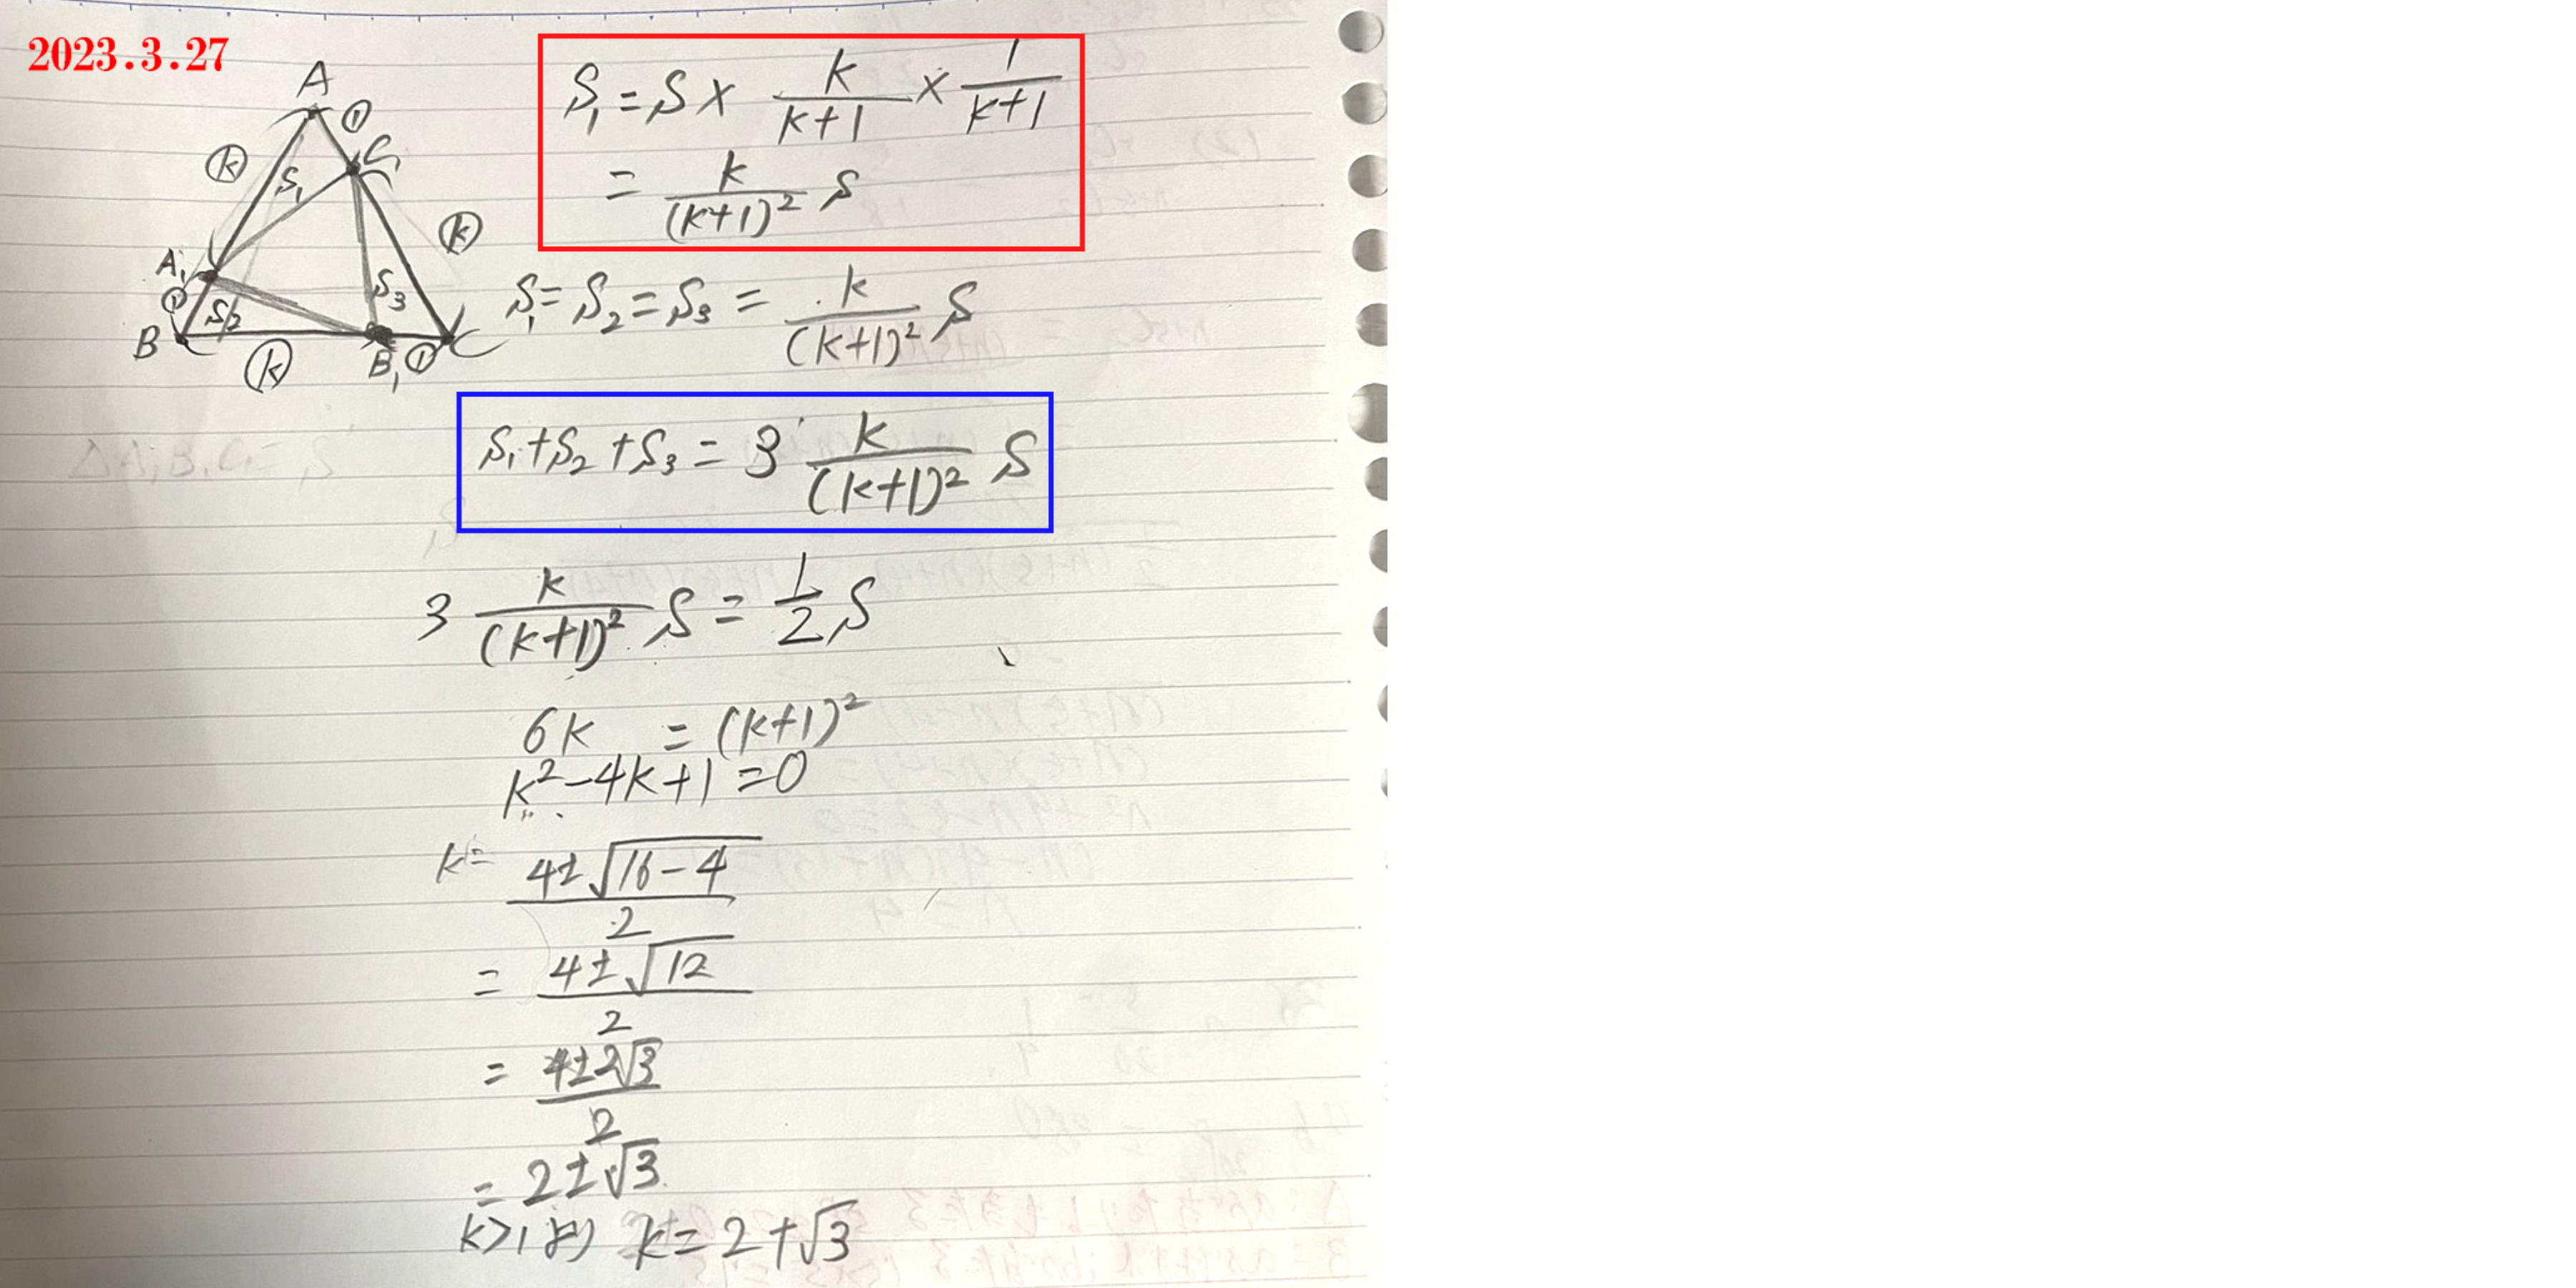 2023.3.27
A
①
ⓚ
C₁
S₁
ⓚ
A₁
①
S₂
S₃
B
C
ⓚ
B₁
①
S₁ = S × k/(k+1) × 1/(k+1)
= k/(k+1)² S
S₁ = S₂ = S₃ = k/(k+1)² S
△A₁B₁C₁ = S'
S₁+S₂+S₃ = 3 k/(k+1)² S
3 k/(k+1)² S = 1/2 S
6k = (k+1)²
k²-4k+1=0
k= (4±√(16-4))/2
= (4±√12)/2
= (4±2√3)/2
= 2±√3
k>1より k=2+√3